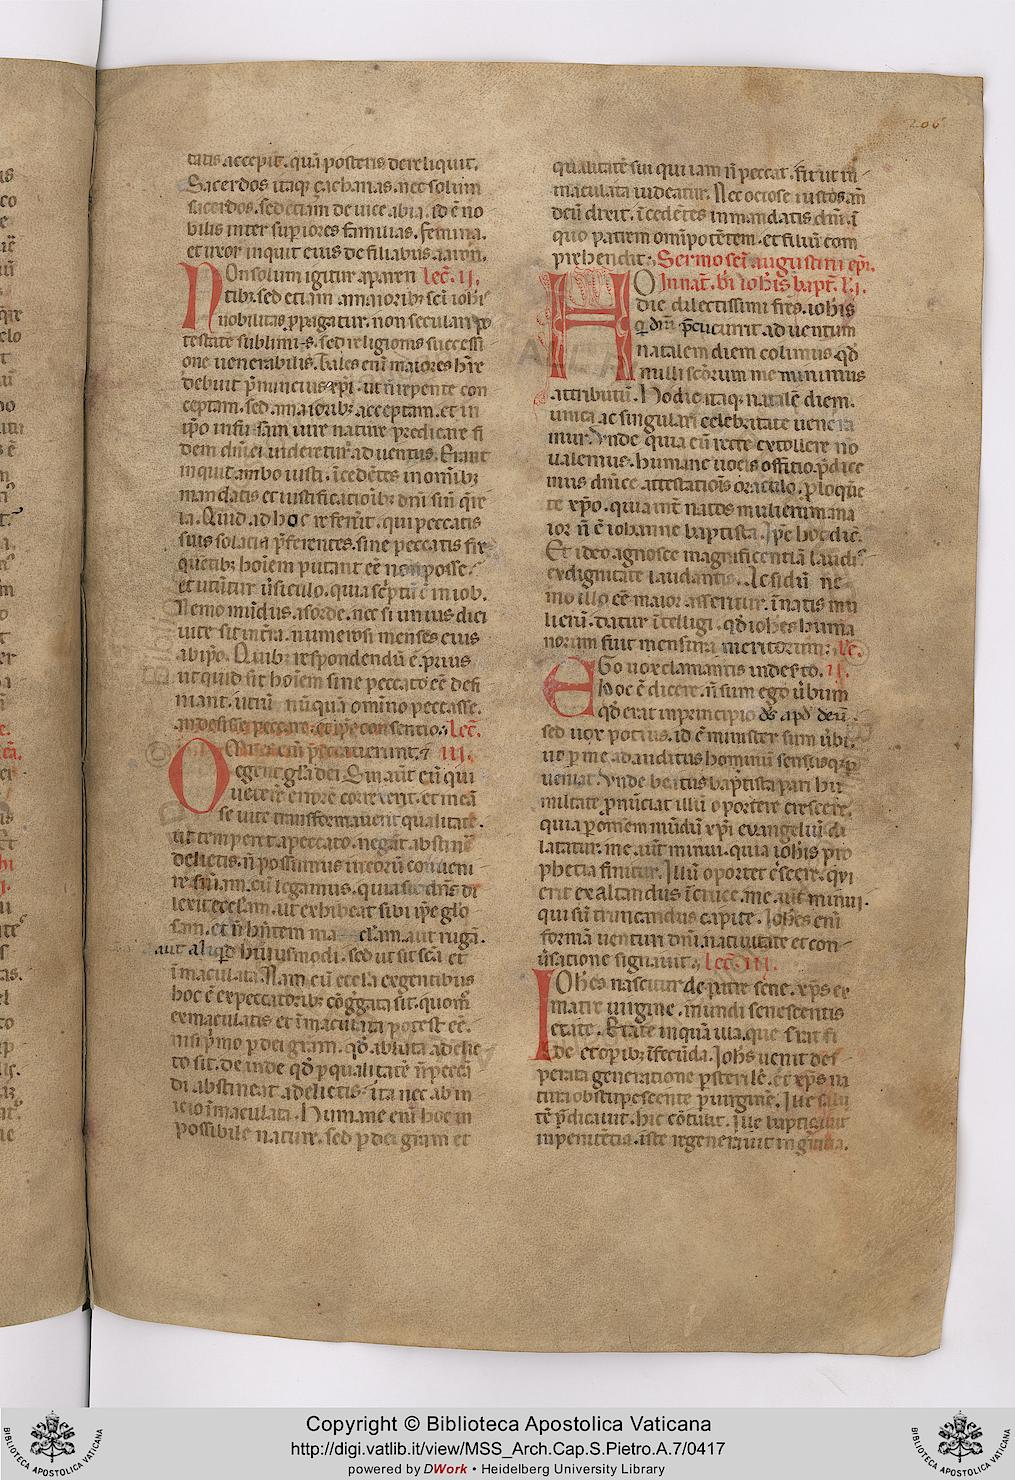 206
tatis accepit. quā posteris dereliquit.
Sacerdos itaq; zacharias. nec solum
sacerdos. sed etiam de uice abia. id ē no
bilis inter supiores familias. femina.
et uxor inquit eius de filiabus aaron.
Non solum igitur a paren lec̄. II.
tibꝫ. sed etiam a maioribꝫ sc̄i iohīs
nobilitas ꝓpagatur. non seculari po
testate sublimis. sed religionis successi
one uenerabilis. Tales eni maiores hr̄e
debuit p̄nuncius xp̄i. ut n̄ repente con
ceptam. sed a maioribꝫ acceptam. et in
ip̄o infusam iure nature predicare fi
dem dn̄ici uideretur aduentus. Erant
inquit ambo iusti. īcedētes in omībꝫ
mandatis et iustificationibꝫ dn̄i sine q̄re
la. Quid ad hoc referunt. qui peccatis
suis solatia p̄ferentes. sine peccatis fre
quētibꝫ hoīem putant eē non posse.
et utūtur ūsiculo. quia scͥptū ē in iob.
Nemo mūdus a sorde. nec si unius diei
uite sit
numerosi menses eius
ab ip̄o. Quibꝫ respondendū ē. prius
ut quid sit hoīem sine peccato eē defi
niant. utrū nūqua omīno peccasse.
an desisse peccare. et ip̄e consentio. Lec̄.
Omnes enī peccauerunt. et III.
egent gl̄a dei. Sin aut eū qui
uetere errore correxerit. et in eā
se uite transformauerit qualitatē.
ut temperet a peccato. negāt abstinē
delictis. n̄ possumus in eorū conueni
re sn̄iam. cū legamus. quia sic dn̄s di
lexit eccl̄am. ut exhibeat sibi ip̄e glo
sam. et n̄ hn̄tem maclam. aut rugā.
aut aliqd huiusmodi. sed ut sit sc̄a et
īmaculata. Nam cū eccl̄a ex gentibus
hoc ē ex peccatoribꝫ cōḡgata sit. quom̄
ex maculatis et īmaculata potest eē.
nisi pͥmo p dei gr̄am. qd̄ abluta a delic
to sit. deinde qd̄ p qualitatē n̄ peccā
di abstineat a delictis. Ita nec ab in
icio īmaculata. Humane enī hoc in
possibile nature. sed p dei gr̄am et
qualitatē sui qui iam n̄ peccat. fit ut in
maculata uideatur. Nec ociose iustos an̄
deū dixit. īcedētes in mandatis dn̄i. ī
quo patrem omīpotētem. et filiū com
prehendit. Sermo sc̄i augustini ep̄i.
In nat̄. bī ioh̄is bapt̄. l̄i.
Hodie dilectissimi fr̄es. ioh̄is
q̄ dn̄i p̄cucurrit aduentum
natalem diem colimus. qd̄
nulli sc̄orum meminimus
attributū. Hodie itaq; natalē diem.
unica ac singulari celebritate uenera
mur. Vnde quia eū recte extollere no
ualemus. humane uocis officio. p̄dice
mus dn̄ice attestationis oraculo. ploquē
te xp̄o. quia int̄ natos mulierum ma
ior n̄ ē iohanne baptista. Ip̄e hoc dic̄.
Et ideo agnosce magnificentiā laudis
ex dignitate laudantis. At si dū ne
mo illo eē maior asseritur. ī natis mu
lierū. datur ītelligi. qd̄ ioh̄es huma
norum fuit mensura meritorum. lc̄.
Ego uox clamantis in deserto. II.
hoc ē dicere. n̄ sum ego ūbum
qd̄ erat in principio ds̄ apd̄ deū.
sed uox potius. id ē minister sum ūbi.
ut p me ad auditus hominū sensusq; p
ueniat. Vnde beatus baptista pari hu
militate pnūciat illū oportere crescere.
quia p omnem mūdū xp̄i euangeliū di
latatur. me aut̄ minui. quia ioh̄is pro
phetia finitur. Illū oportet cͥscere. qui
erit exaltandus ī cruce. me aut̄ minui.
qui sū truncandus capite. Ioh̄es enī
formā uenturi dn̄i. natiuitate et con
ūsatione signauit. Lec̄. III.
Ioh̄es nascitur de patre sene. xp̄s ex
matre uirgine. mundi senescentis
etate. Etate inquā illa. que s rat fi
de. et opibꝫ īfecūda. Ioh̄s uenit des
perata generatione p sterilē. et xp̄s na
tura obstupescente p uirginē. Iste salu
tē p̄dicauit. hic cōtulit. Iste baptizauit
in penitētia. iste regenerauit in gr̄a.
Copyright © Biblioteca Apostolica Vaticana
http://digi.vatlib.it/view/MSS_Arch.Cap.S.Pietro.A.7/0417
powered by DWork • Heidelberg University Library
BIBLIOTECA APOSTOLICA VATICANA
BIBLIOTECA APOSTOLICA VATICANA